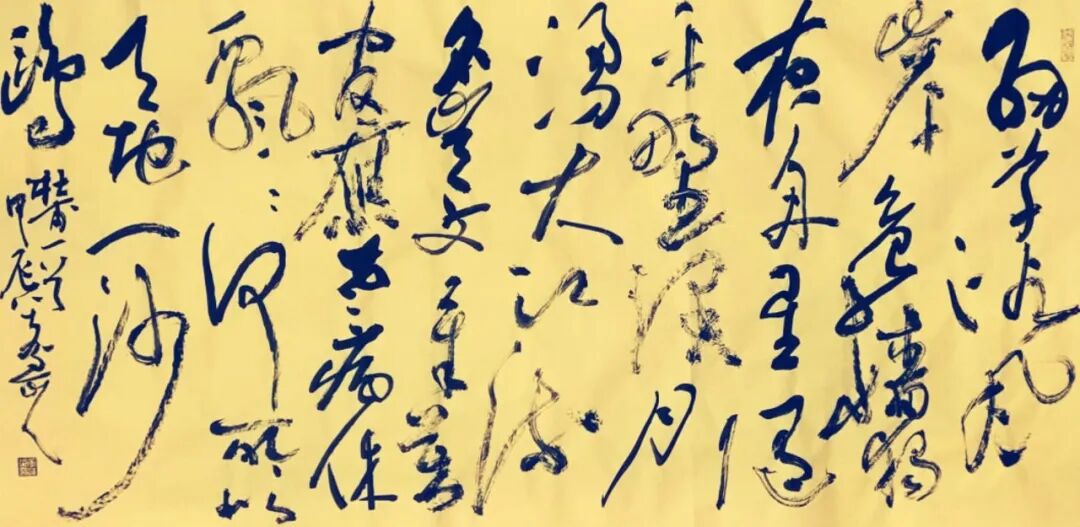 细草微风
岸危樯独
夜舟星
平野阔月
涌大江流
名岂文章著
官應老病休
飘飘何所似
天地一沙
鸥
甲辰